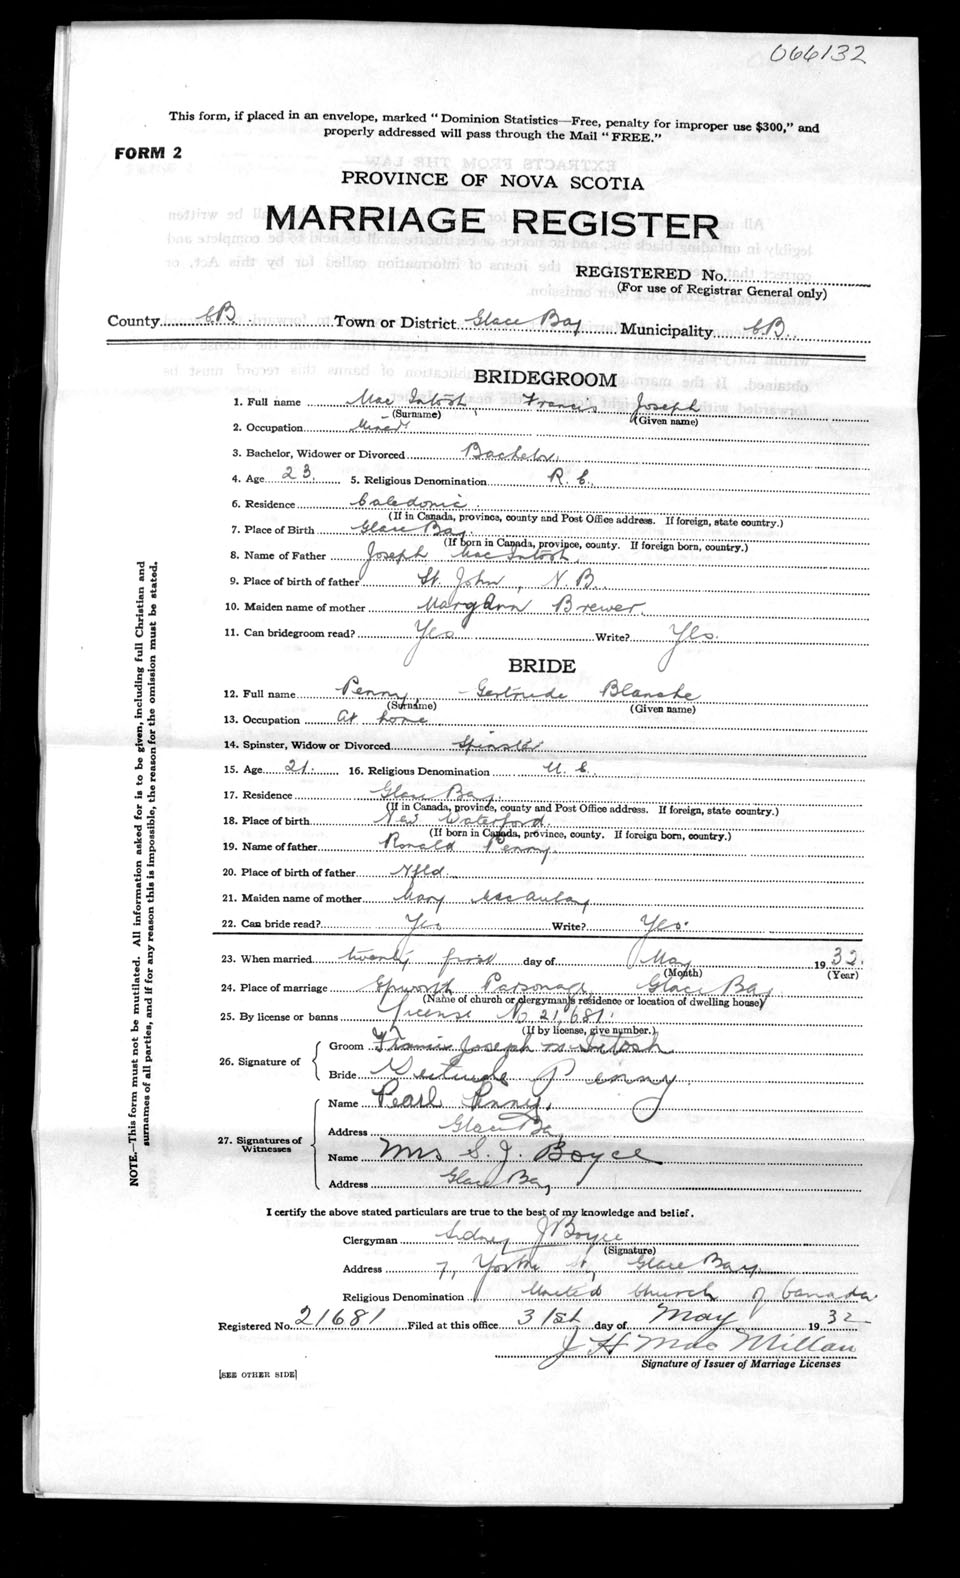 066132
This form, if placed in an envelope, marked "Dominion Statistics—Free, penalty for improper use $300," and
properly addressed will pass through the Mail "FREE."
FORM 2
PROVINCE OF NOVA SCOTIA
MARRIAGE REGISTER
REGISTERED No.
(For use of Registrar General only)
County C.B. Town or District Glace Bay Municipality C.B.
BRIDEGROOM
1. Full name Mac Intosh, Francis Joseph
(Surname) (Given name)
2. Occupation Miner
3. Bachelor, Widower or Divorced Bachelor.
4. Age 23. 5. Religious Denomination R. C.
6. Residence Caledonia.
(If in Canada, province, county and Post Office address. If foreign, state country.)
7. Place of Birth Glace Bay.
(If born in Canada, province, county. If foreign born, country.)
8. Name of Father Joseph MacIntosh.
9. Place of birth of father St. John, N.B.
10. Maiden name of mother Mary Ann Brewer.
11. Can bridegroom read? Yes Write? Yes.
BRIDE
12. Full name Penny, Gertrude Blanche
(Surname) (Given name)
13. Occupation At home
14. Spinster, Widow or Divorced Spinster
15. Age 21. 16. Religious Denomination U. C.
17. Residence Glace Bay.
(If in Canada, province, county and Post Office address. If foreign, state country.)
18. Place of birth New Waterford.
(If born in Canada, province, county. If foreign born, country.)
19. Name of father Ronald Penny.
20. Place of birth of father Nfld.
21. Maiden name of mother Mary MacAulay
22. Can bride read? Yes Write? Yes.
23. When married twenty first day of May 1932.
(Month) (Year)
24. Place of marriage Epworth Parsonage, Glace Bay
(Name of church or clergyman's residence or location of dwelling house)
25. By license or banns License No 21,681.
(If by license, give number.)
26. Signature of
Groom Francis Joseph McIntosh
Bride Gertrude Penny.
27. Signatures of Witnesses
Name Pearl Penney.
Address Glace Bay
Name Mrs S. J. Boyce
Address Glace Bay
I certify the above stated particulars are true to the best of my knowledge and belief.
Clergyman Sidney J Boyce
(Signature)
Address 7, Yorke St, Glace Bay.
Religious Denomination United Church of Canada.
Registered No. 21681 Filed at this office 31st day of May 1932
J H Mac Millan
Signature of Issuer of Marriage Licenses
[SEE OTHER SIDE]
NOTE.—This form must not be mutilated. All information asked for is to be given, including full Christian and
surnames of all parties, and if for any reason this is impossible, the reason for the omission must be stated.